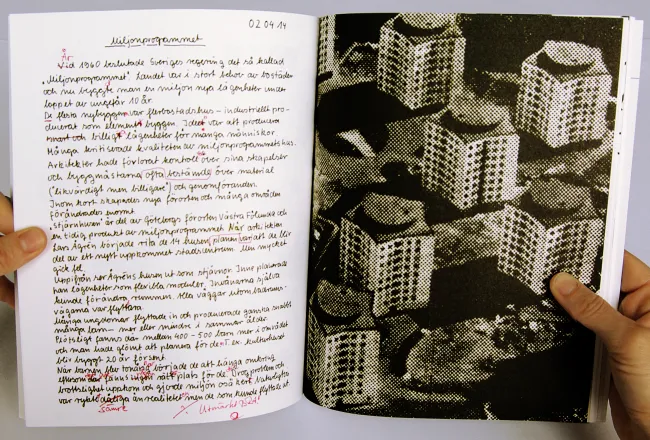 02.04.14
Miljonprogrammet
År
Vid 1960 beslutade Sveriges regering det så kallad
"Miljonprogrammet". Landet var i stort behov av bostäder
och nu byggde man en miljon nya lägenheter under
loppet av ungefär 10 år.
De flesta nybyggen var flerbostadshus – industriellt pro-
ducerat som element byggen. Ideet var att producera
snart och billigt lägenheter för många människor.
Många kritiserade kvaliteten av miljonprogrammetshus.
Arkitekter hade förlorat kontroll över sina skapelser
och byggmästarna ofta bestämde över material
("likvärdigt men billigare") och genomföranden.
Inom kort skapades nya förorten och många områden
förändrades enormt.
"Stjärnhusen" är del av Göteborgs förorten Västra Frölunda och
en tidig produkt av miljonprogrammet. När arkitekten
Lars Ågren började rita de 14 husen, planen var att de blir
del av ett nytt uppkommet stadscentrum. Men mycket
gick fel.
Uppifrån ser Ågrens husen ut som stjärnor. Inne planerade
han lägenheter som flexibla moduler. Invånarna själva
kunde förändra rummen. Alla väggar utom badrums-
väggarna var flyttbara.
Många ungdomar flyttade in och producerade ganska snabbt
många barn – mer eller mindre i samma ålder.
Plötsligt fanns där mellan 400 - 500 barn mer i området
och man hade glömt att planera för dem: ex. kulturhuset
blir byggt 20 år försent.
När barnen blev tonåring började de att hänga omkring
eftersom där fanns ingen rätt plats för de. Drogproblem och
brottslighet uppkom och gjorde miljön osäkert. Naturligtvis
var ryktet dåliga än realitetet men de som kunde flyttade ut.
sämre
Utmärkt bild!